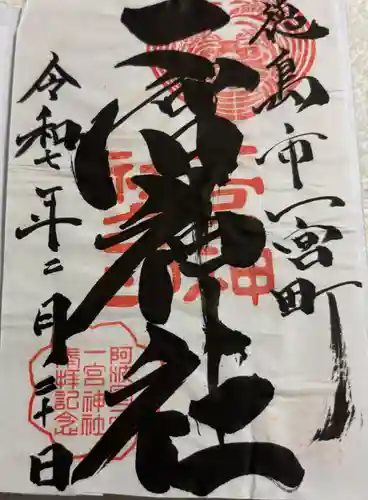 徳島市一宮町
一宮神社
令和七年二月二十日
阿波国
一宮神社
参拝記念